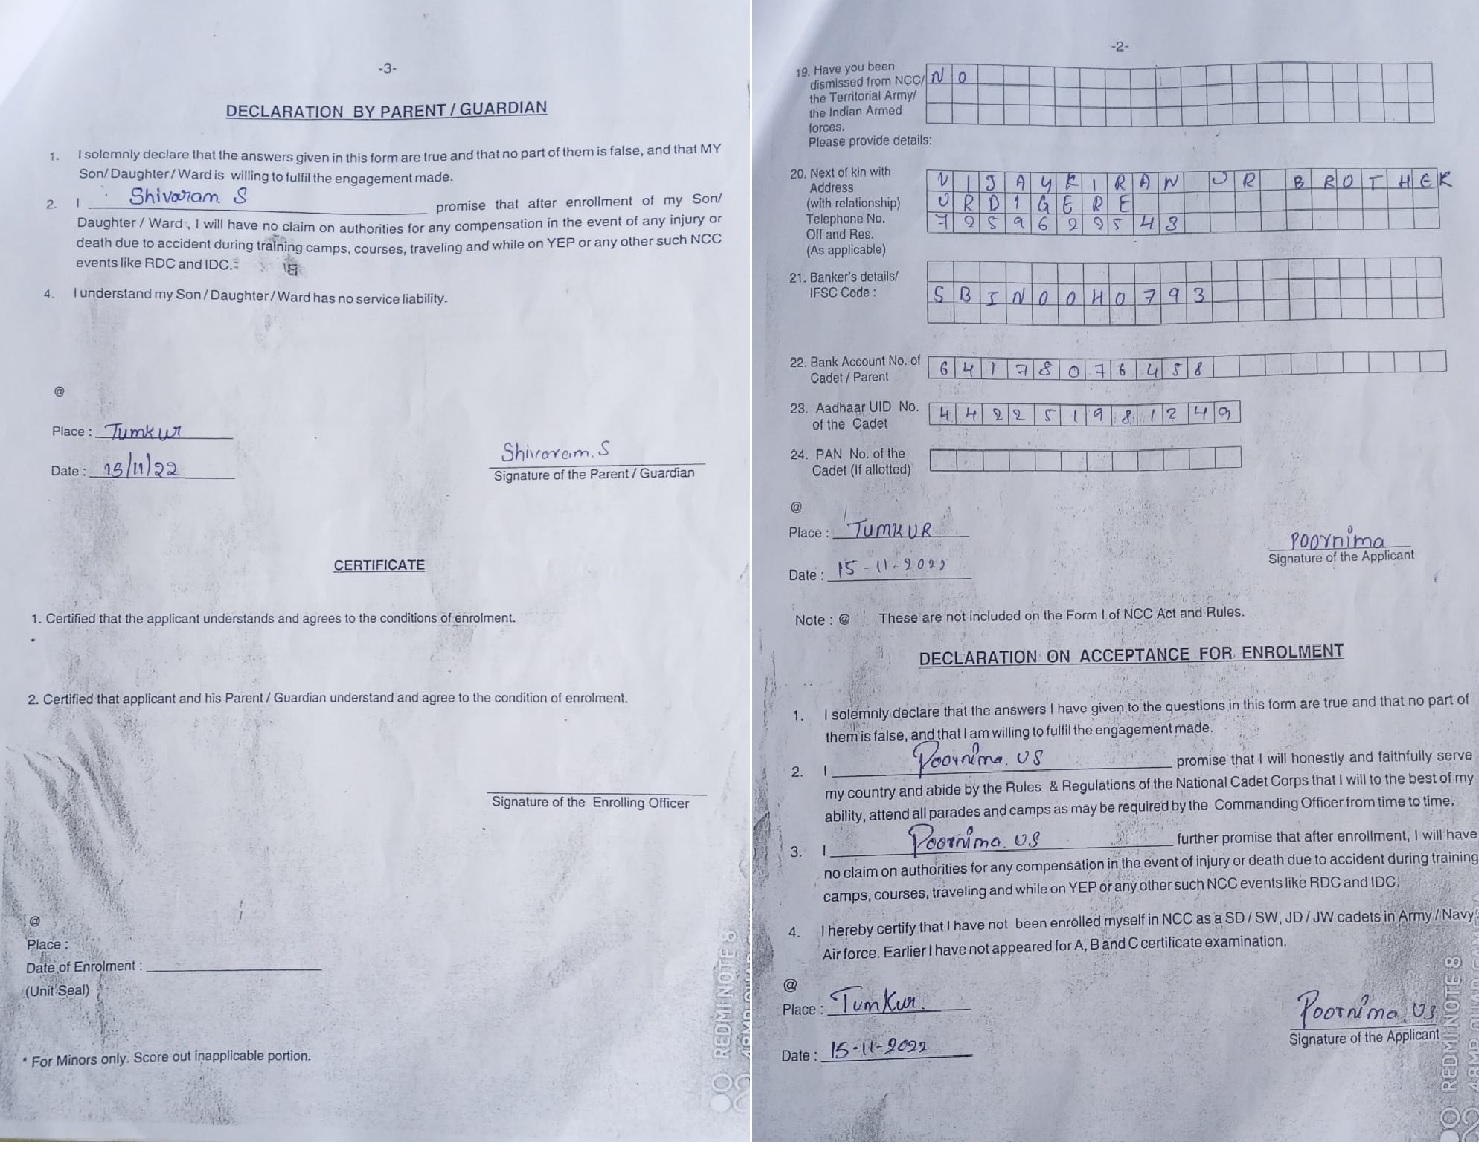 -3-
DECLARATION BY PARENT / GUARDIAN
1. I solemnly declare that the answers given in this form are true and that no part of them is false, and that MY
Son/ Daughter/ Ward is willing to fulfil the engagement made.
2. I Shivaram S promise that after enrollment of my Son/
Daughter / Ward, I will have no claim on authorities for any compensation in the event of any injury or
death due to accident during training camps, courses, traveling and while on YEP or any other such NCC
events like RDC and IDC.
4. I understand my Son / Daughter / Ward has no service liability.
@
Place : Tumkur
Date : 15/11/22
Shivaram. S
Signature of the Parent / Guardian
CERTIFICATE
1. Certified that the applicant understands and agrees to the conditions of enrolment.
2. Certified that applicant and his Parent / Guardian understand and agree to the condition of enrolment.
Signature of the Enrolling Officer
@
Place :
Date of Enrolment :
(Unit Seal)
* For Minors only. Score out inapplicable portion.
REDMI NOTE 8
-2-
19. Have you been
dismissed from NCC/ NO
the Territorial Army/
the Indian Armed
forces.
Please provide details:
20. Next of kin with VIJAYKIRAN UR BROTHER
Address
(with relationship) URDIGERE
Telephone No. 7259622543
Off and Res.
(As applicable)
21. Banker's details/
IFSC Code : SBIN0040793
22. Bank Account No. of 64178076458
Cadet / Parent
23. Aadhaar UID No. 442251981249
of the Cadet
24. PAN No. of the
Cadet (If allotted)
@
Place : TUMKUR
Date : 15-11-2022
Poornima
Signature of the Applicant
Note : @ These are not included on the Form I of NCC Act and Rules.
DECLARATION ON ACCEPTANCE FOR ENROLMENT
1. I solemnly declare that the answers I have given to the questions in this form are true and that no part of
them is false, and that I am willing to fulfil the engagement made.
2. I Poornima. US promise that I will honestly and faithfully serve
my country and abide by the Rules & Regulations of the National Cadet Corps that I will to the best of my
ability, attend all parades and camps as may be required by the Commanding Officer from time to time.
3. I Poornima. US further promise that after enrollment, I will have
no claim on authorities for any compensation in the event of injury or death due to accident during training
camps, courses, traveling and while on YEP or any other such NCC events like RDC and IDC.
4. I hereby certify that I have not been enrolled myself in NCC as a SD / SW, JD / JW cadets in Army / Navy
Air force. Earlier I have not appeared for A, B and C certificate examination.
@
Place : Tumkur.
Date : 15-11-2022
Poornima. US
Signature of the Applicant
REDMI NOTE 8